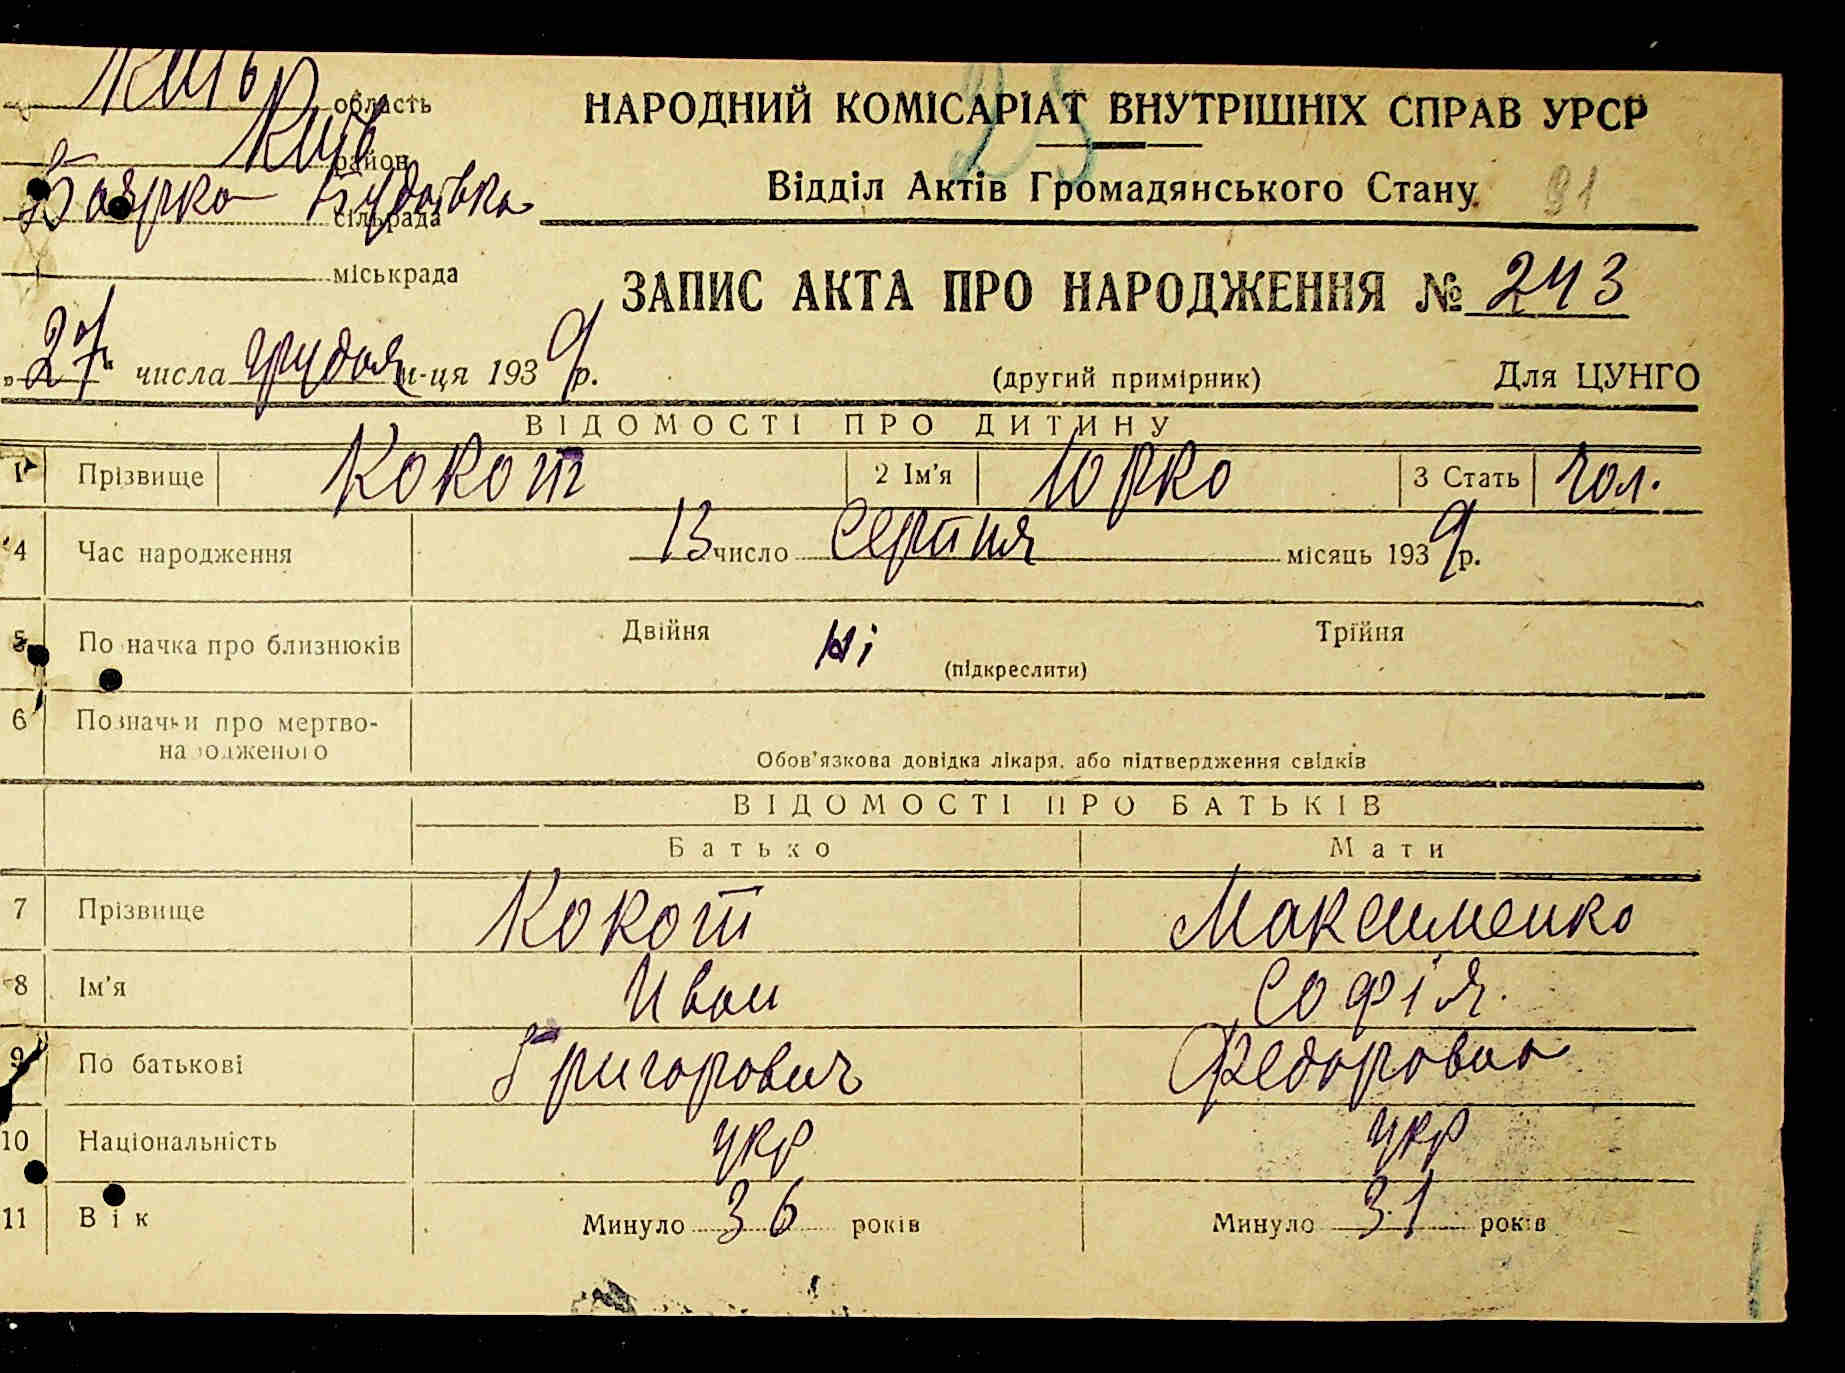 Київ область
Київ район
Боярка Будаївка сільрада
міськрада
НАРОДНИЙ КОМІСАРІАТ ВНУТРІШНІХ СПРАВ УРСР
25
Відділ Актів Громадянського Стану
91
ЗАПИС АКТА ПРО НАРОДЖЕННЯ № 243
„27“ числа грудня м-ця 1939 р.
(другий примірник) Для ЦУНГО
ВІДОМОСТІ ПРО ДИТИНУ
1 Прізвище Кокот 2 Ім'я Юрко 3 Стать чол.
4 Час народження 13 число серпня місяць 1939 р.
5 Позначка про близнюків Двійня Ні Трійня
(підкреслити)
6 Позначки про мертво-
народженого Обов'язкова довідка лікаря, або підтвердження свідків
ВІДОМОСТІ ПРО БАТЬКІВ
Батько Мати
7 Прізвище Кокот Максименко
8 Ім'я Иван Софія.
9 По батькові Григорович Федоровна
10 Національність укр укр
11 Вік Минуло 36 років Минуло 31 років